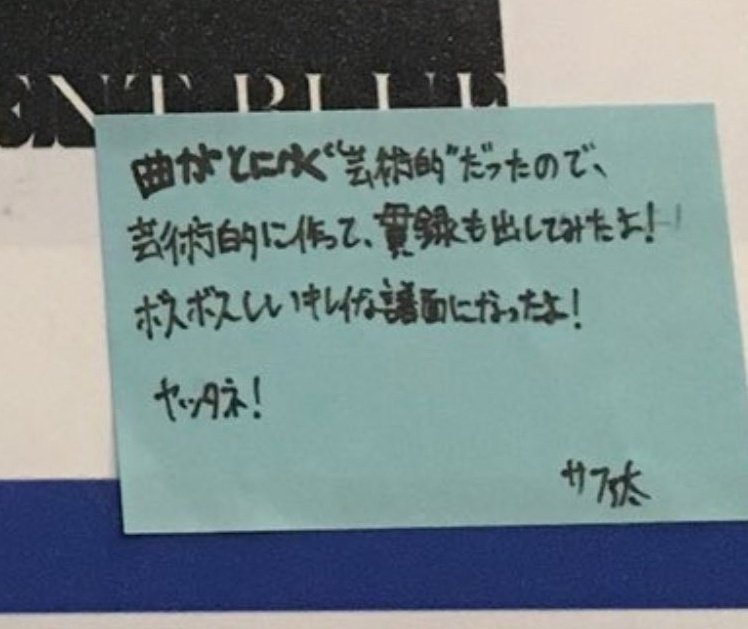 ENT BLUE
曲がとにかく“芸術的”だったので、
芸術的に作って、貫録も出してみたよ!
ボスボスしいキレイな譜面になったよ!
ヤッタネ!
サファ太